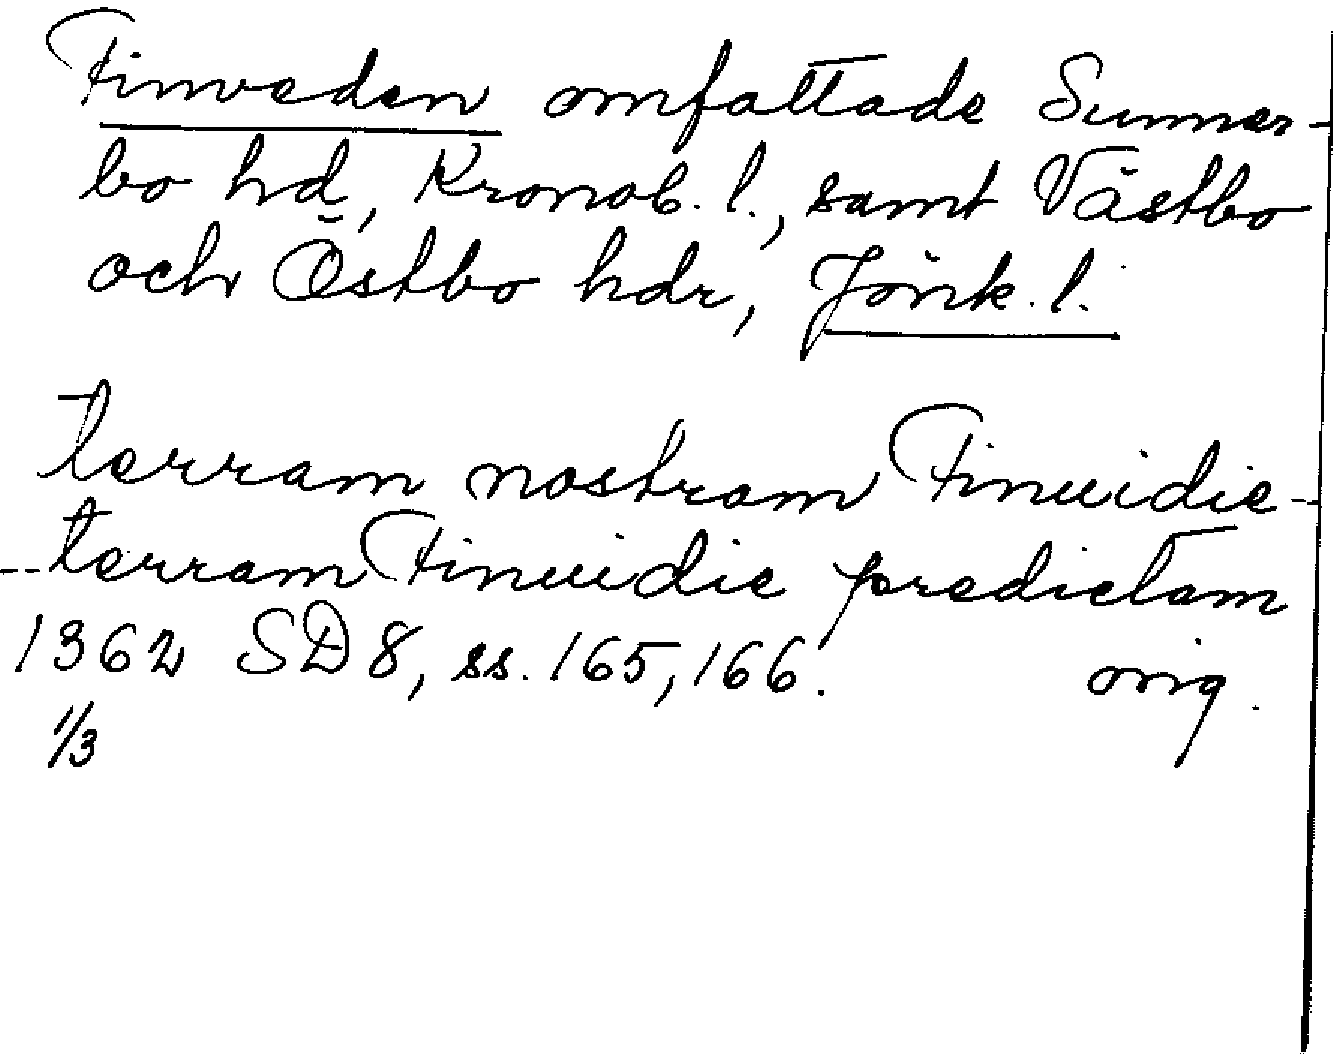 Finveden omfattade Sunner-
bo hd, Kronob. l., samt Västbo
och Östbo hdr, Jönk. l.
terram nostram Finuidie --
-- terram Finuidie predictam
1362 SD 8, ss. 165, 166. orig.
1/3